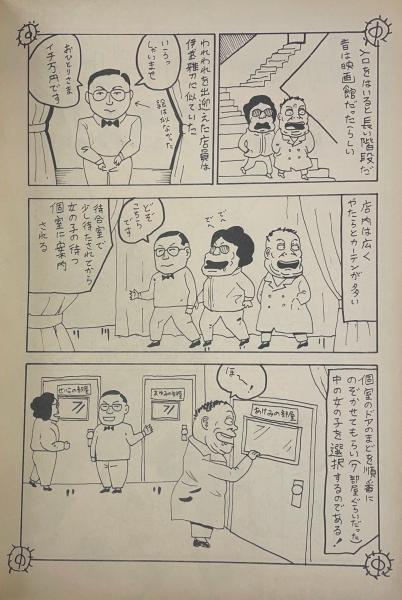 入口をはいると長い階段だ
昔は映画館だったらしい
われわれを出迎えた店員は
伊武雅刀に似ていた
いらっ
しゃいませ
おひとりさま
イチ万円です
話は似なかった
店内は広く
やたらとカーテンが多い
でへ
でへ
どぞ
こちら
です
待合室で
少し待たされてから
女の子の待つ
個室に案内
される
個室のドアのまどを順番に
のぞかせてもらい(今部屋ぐらいだった)
中の女の子を選択するのである!
ほ〜!
あけみの部屋
あゆみの部屋
せいこの部屋